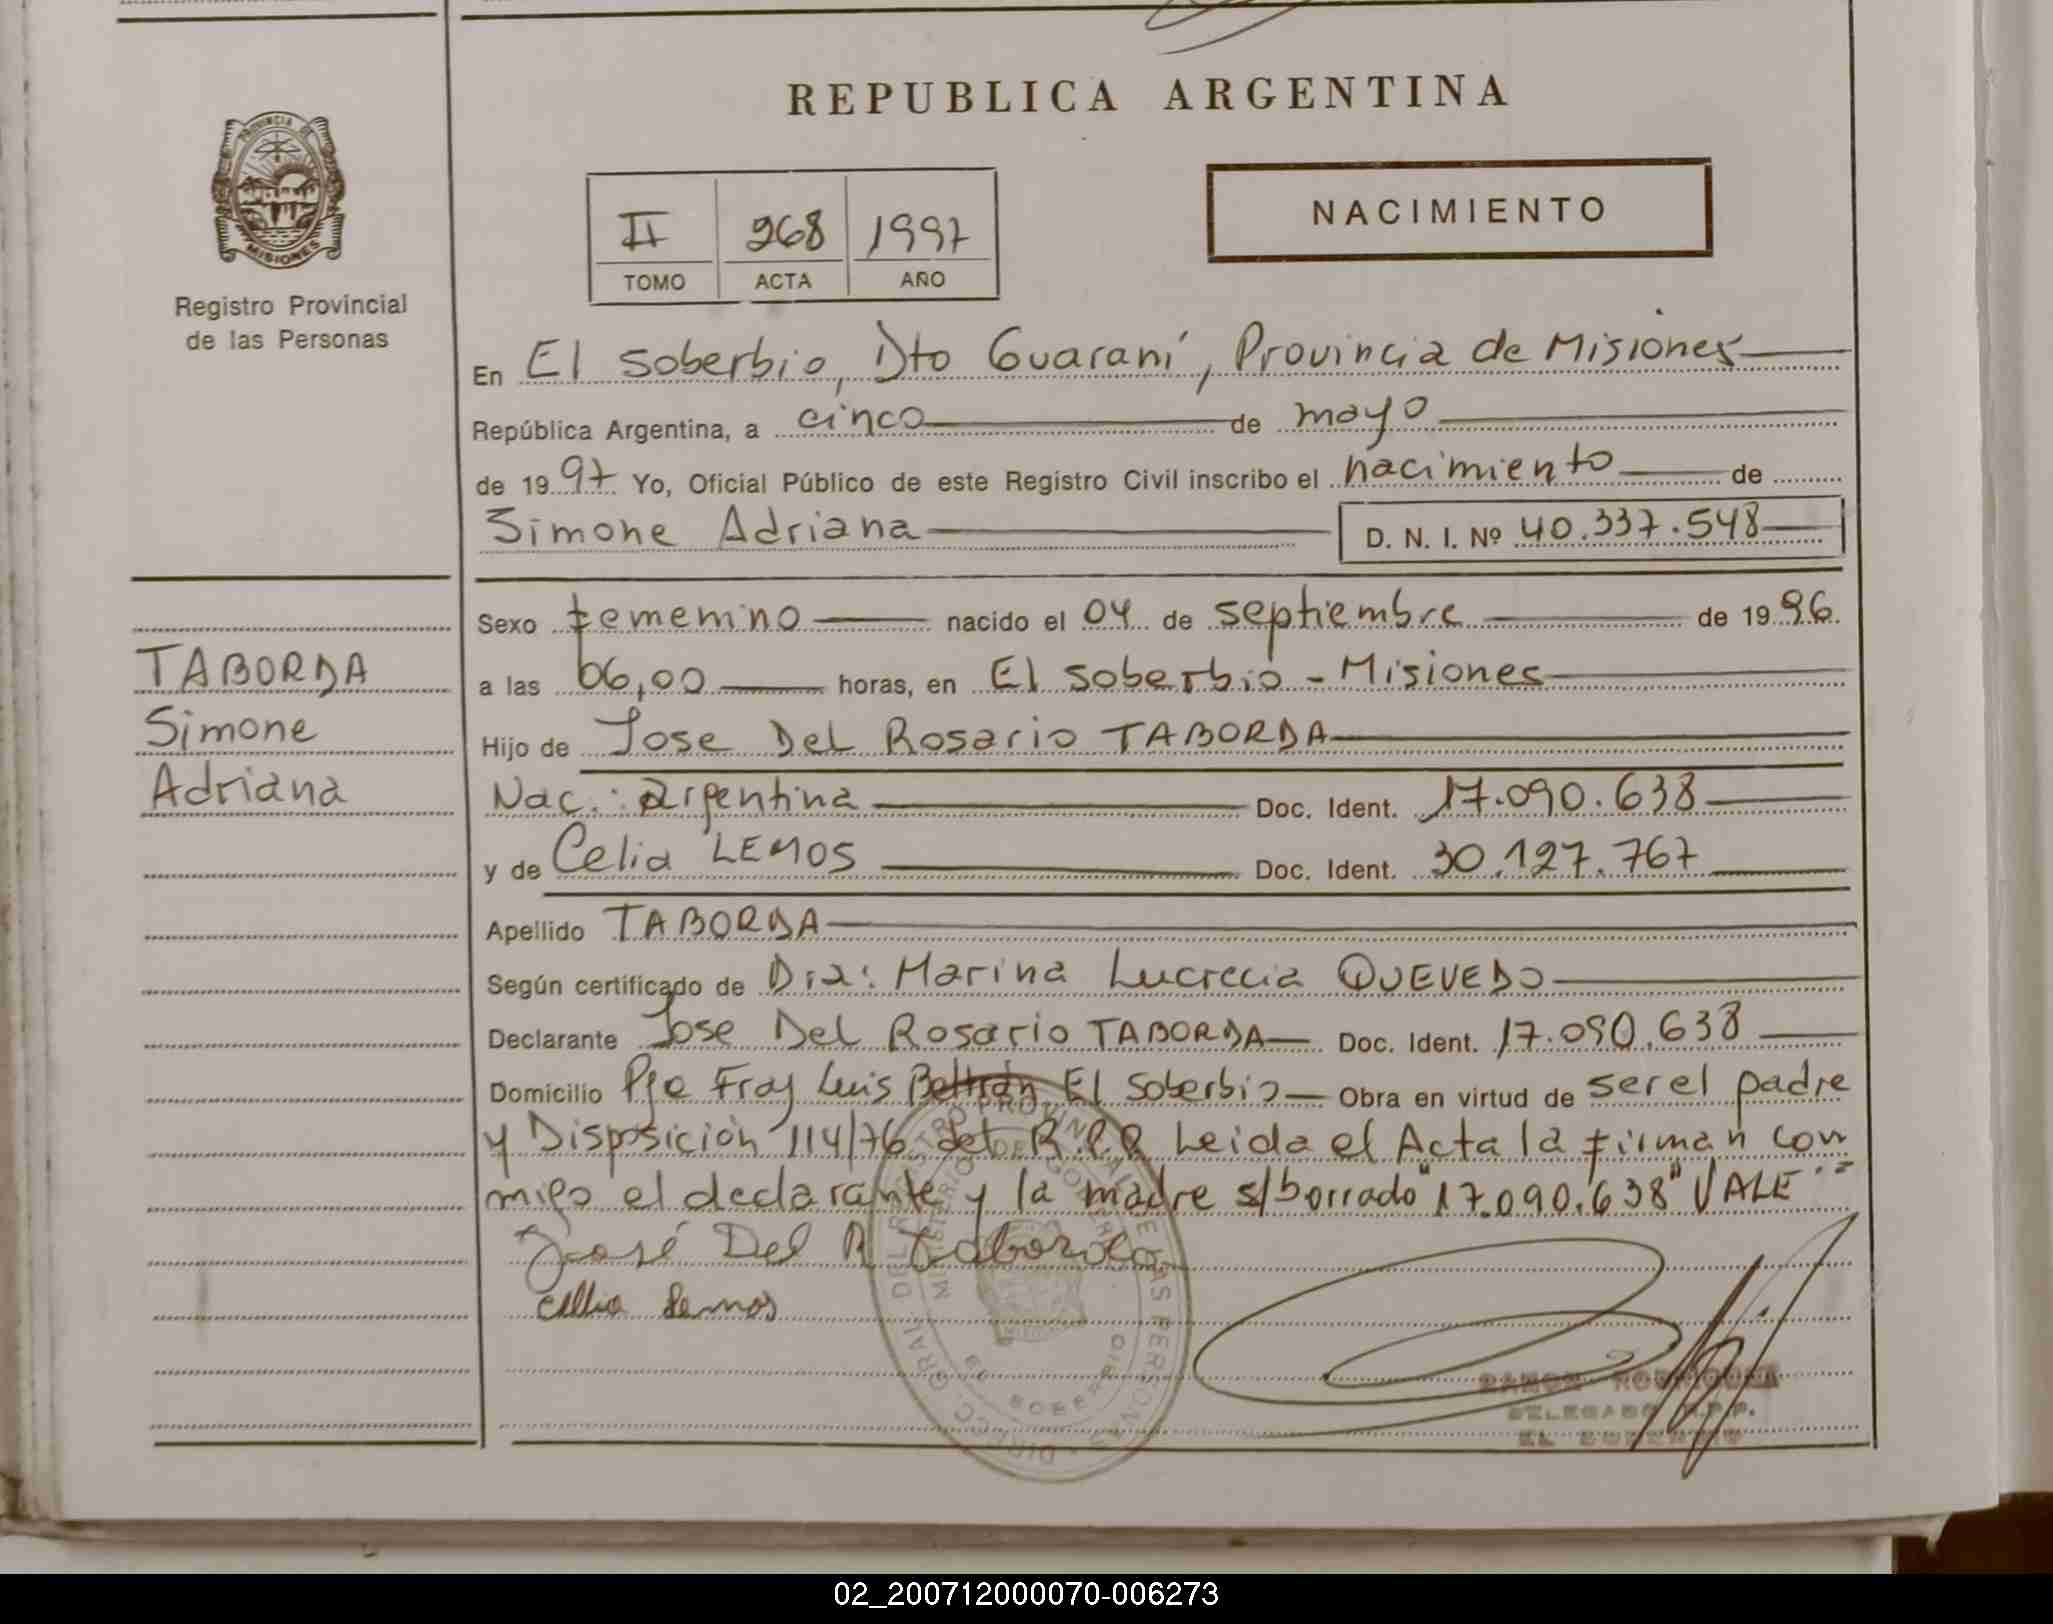 REPUBLICA ARGENTINA
PROVINCIA DE
MISIONES
Registro Provincial
de las Personas
II 268 1997
TOMO ACTA AÑO
NACIMIENTO
En El Soberbio, Dto Guaraní, Provincia de Misiones
República Argentina, a cinco de mayo
de 1997 Yo, Oficial Público de este Registro Civil inscribo el nacimiento de
Simone Adriana D. N. I. Nº 40.337.548
TABORDA
Simone
Adriana
Sexo femenino nacido el 04 de septiembre de 1996.
a las 06,00 horas, en El Soberbio - Misiones
Hijo de Jose Del Rosario TABORDA
Nac.: argentina Doc. Ident. 17.090.638
y de Celia LEMOS Doc. Ident. 30.127.767
Apellido TABORDA
Según certificado de Dra: Marina Lucrecia QUEVEDO
Declarante Jose Del Rosario TABORDA Doc. Ident. 17.090.638
Domicilio Pje Fray Luis Beltrán El Soberbio Obra en virtud de ser el padre
y Disposición 114/76 del R.P.P. Leida el Acta la firman con
migo el declarante y la madre s/borrado "17.090.638" VALE
José Del R Taborda
Lemos
DELEGADO R.P.P.
EL SOBERBIO
02_200712000070-006273